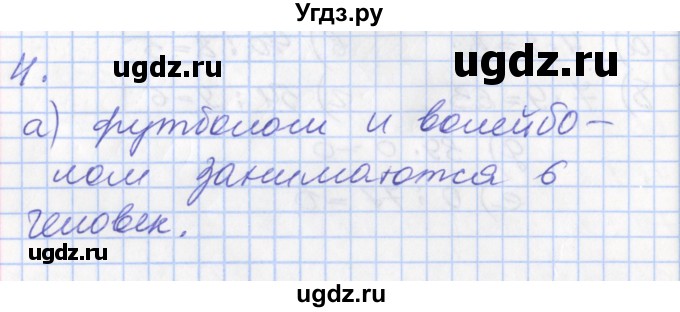 Угдз.ру
4.
ugdz.ru ugdz.ru
а) футболом и волейбо-
лом занимаются 6
человек.
ugdz.ru ugdz.ru
ugdz.ru